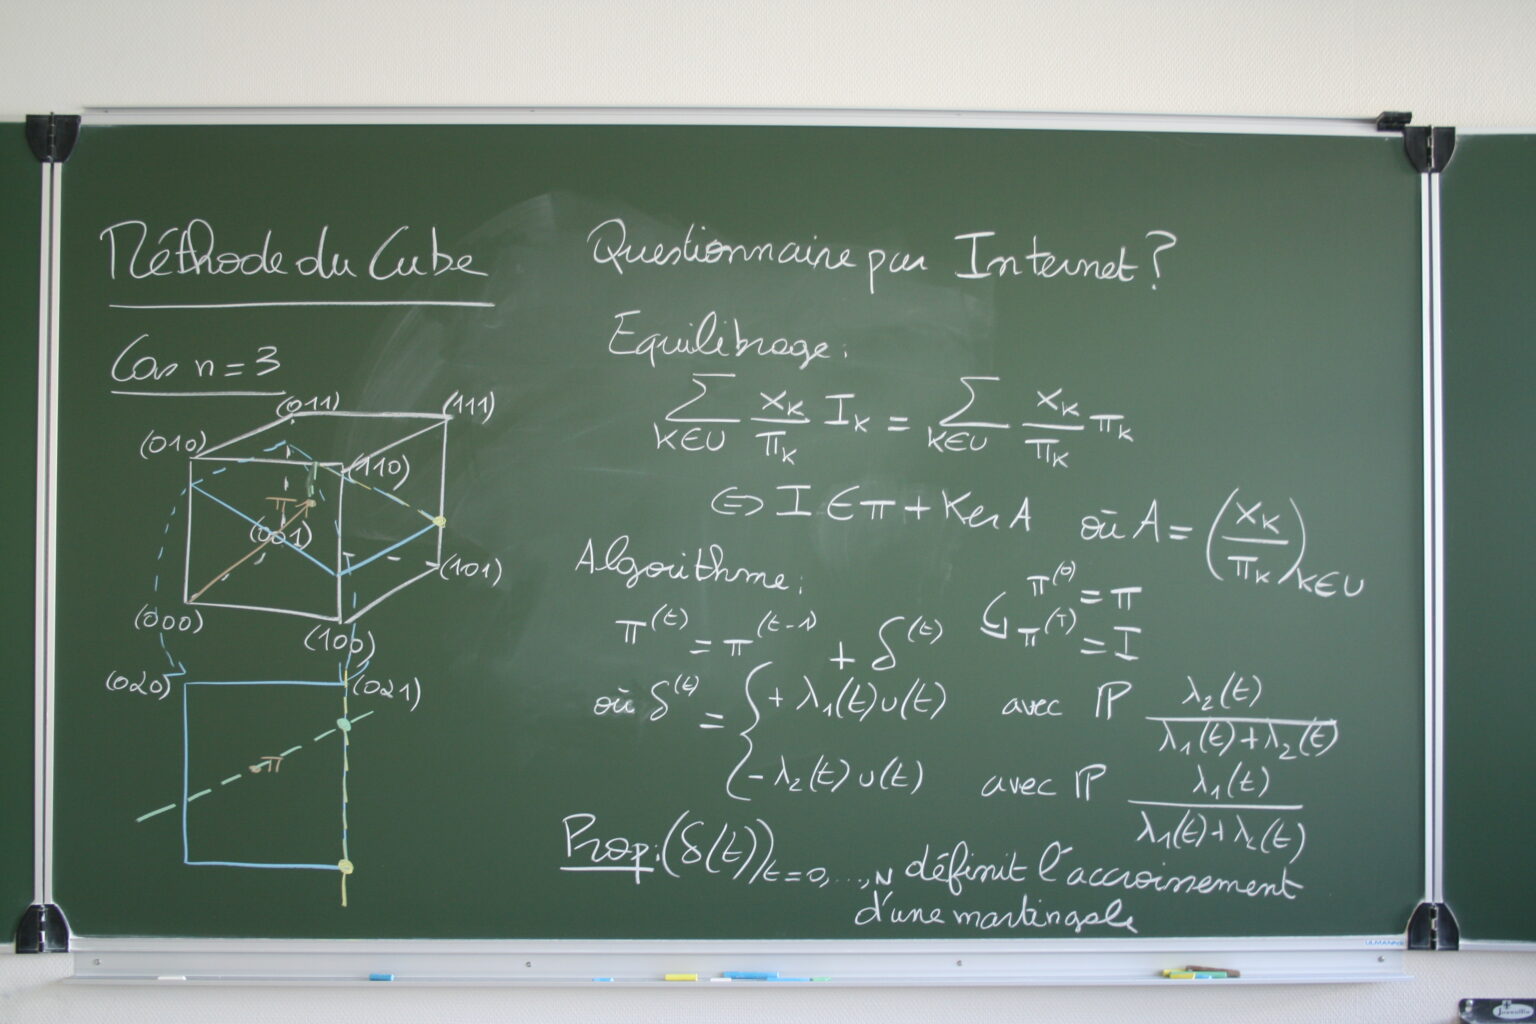 Méthode du Cube
Cas n = 3
(011)
(111)
(010)
(110)
π
(001)
(101)
(000)
(100)
(020)
(021)
π
Questionnaire par Internet ?
Equilibrage :
∑_{k∈U} x_k/π_k I_k = ∑_{k∈U} x_k/π_k π_k
⇔ I ∈ π + Ker A où A = (x_k/π_k)_{k∈U}
Algorithme :
π^(0) = π
π^(T) = I
π^(t) = π^(t-1) + δ^(t)
où δ^(t) = { + λ₁(t) u(t) avec ℙ λ₂(t)/(λ₁(t)+λ₂(t))
- λ₂(t) u(t) avec ℙ λ₁(t)/(λ₁(t)+λ₂(t))
Prop : (δ(t))_{t=0,...,N} définit l'accroissement
d'une martingale
ULMANN